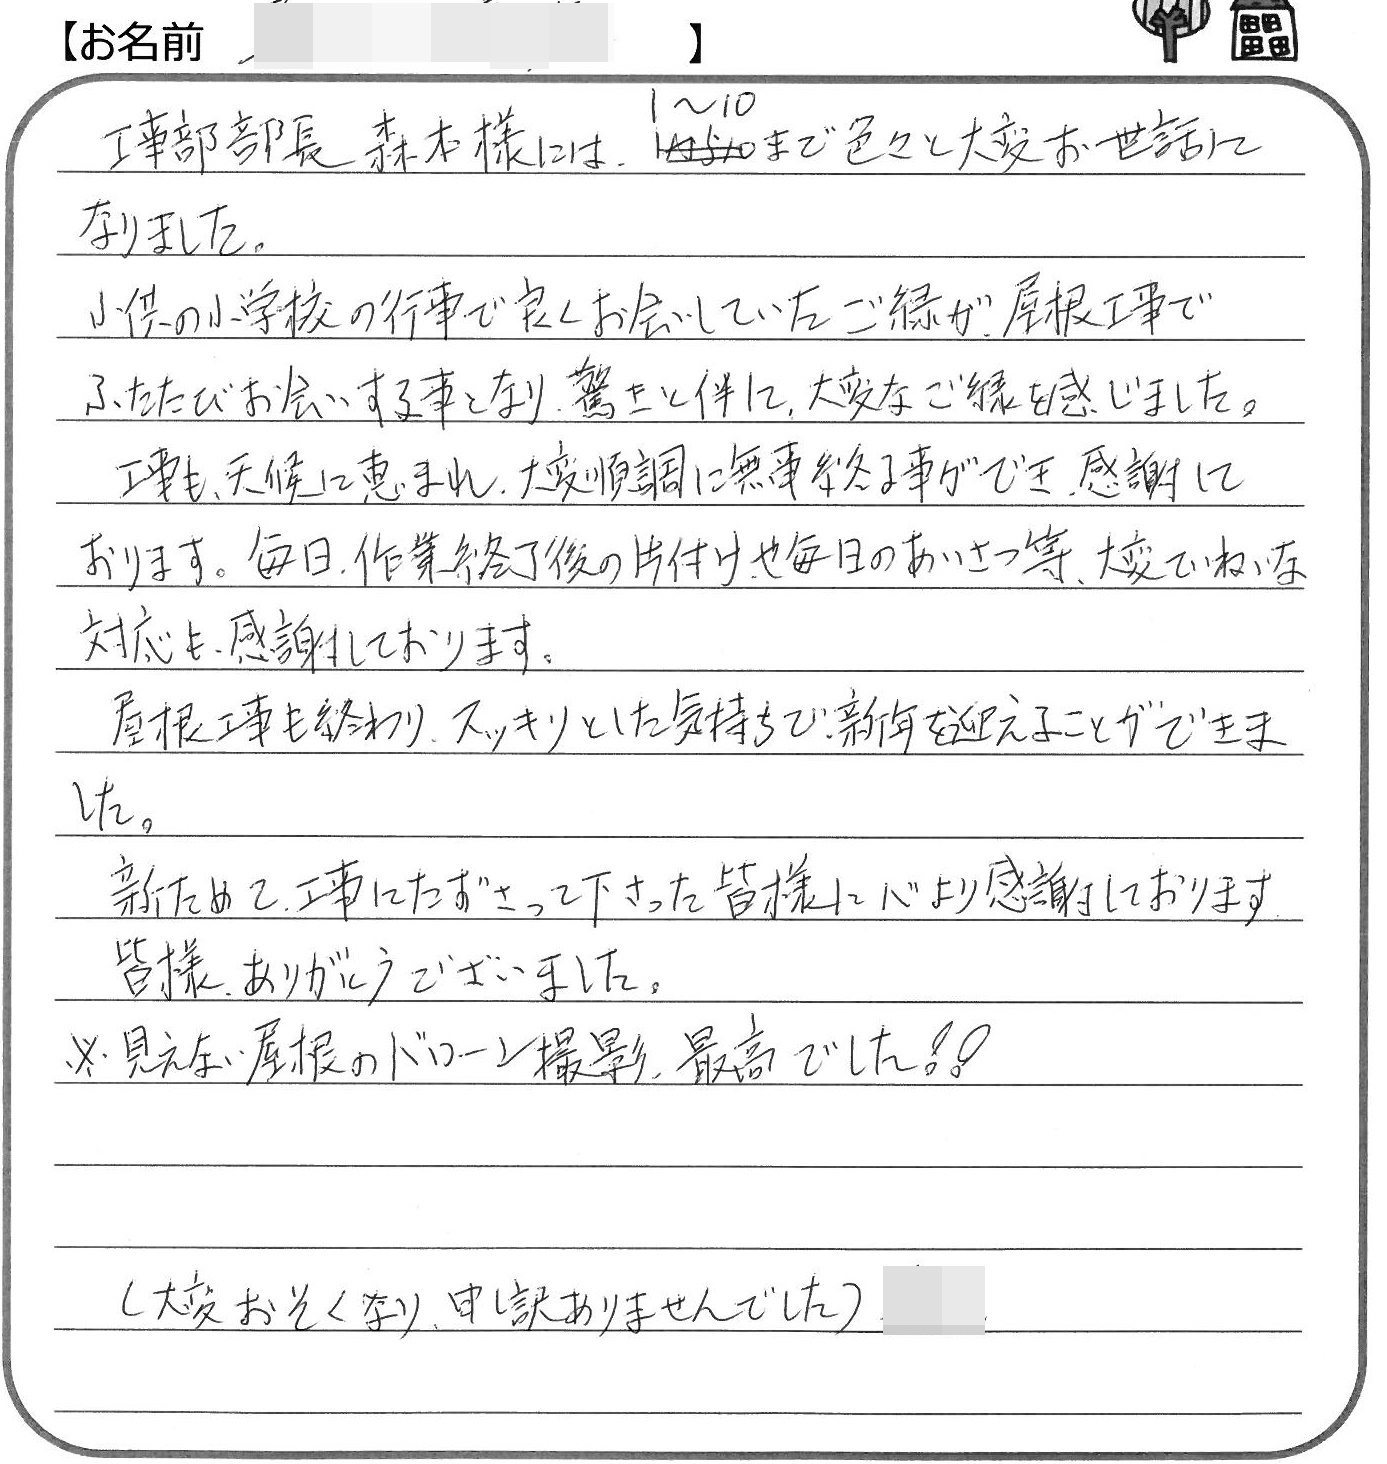 【お名前 】
工事部部長 森本様には、1～10まで色々と大変お世話に
なりました。
小供の小学校の行事で良くお会いしていたご縁が、屋根工事で
ふたたびお会いする事となり、驚きと伴に、大変なご縁を感じました。
工事も、天候に恵まれ、大変順調に無事終る事ができ、感謝して
おります。毎日、作業終了後の片付けや毎日のあいさつ等、大変ていねいな
対応も、感謝しております。
屋根工事も終わり、スッキリとした気持ちで、新年を迎えることができま
した。
新ためて、工事にたずさって下さった皆様に心より感謝しております
皆様、ありがとうございました。
※見えない屋根のドローン撮影、最高でした!!
(大変おそくなり、申し訳ありませんでした)